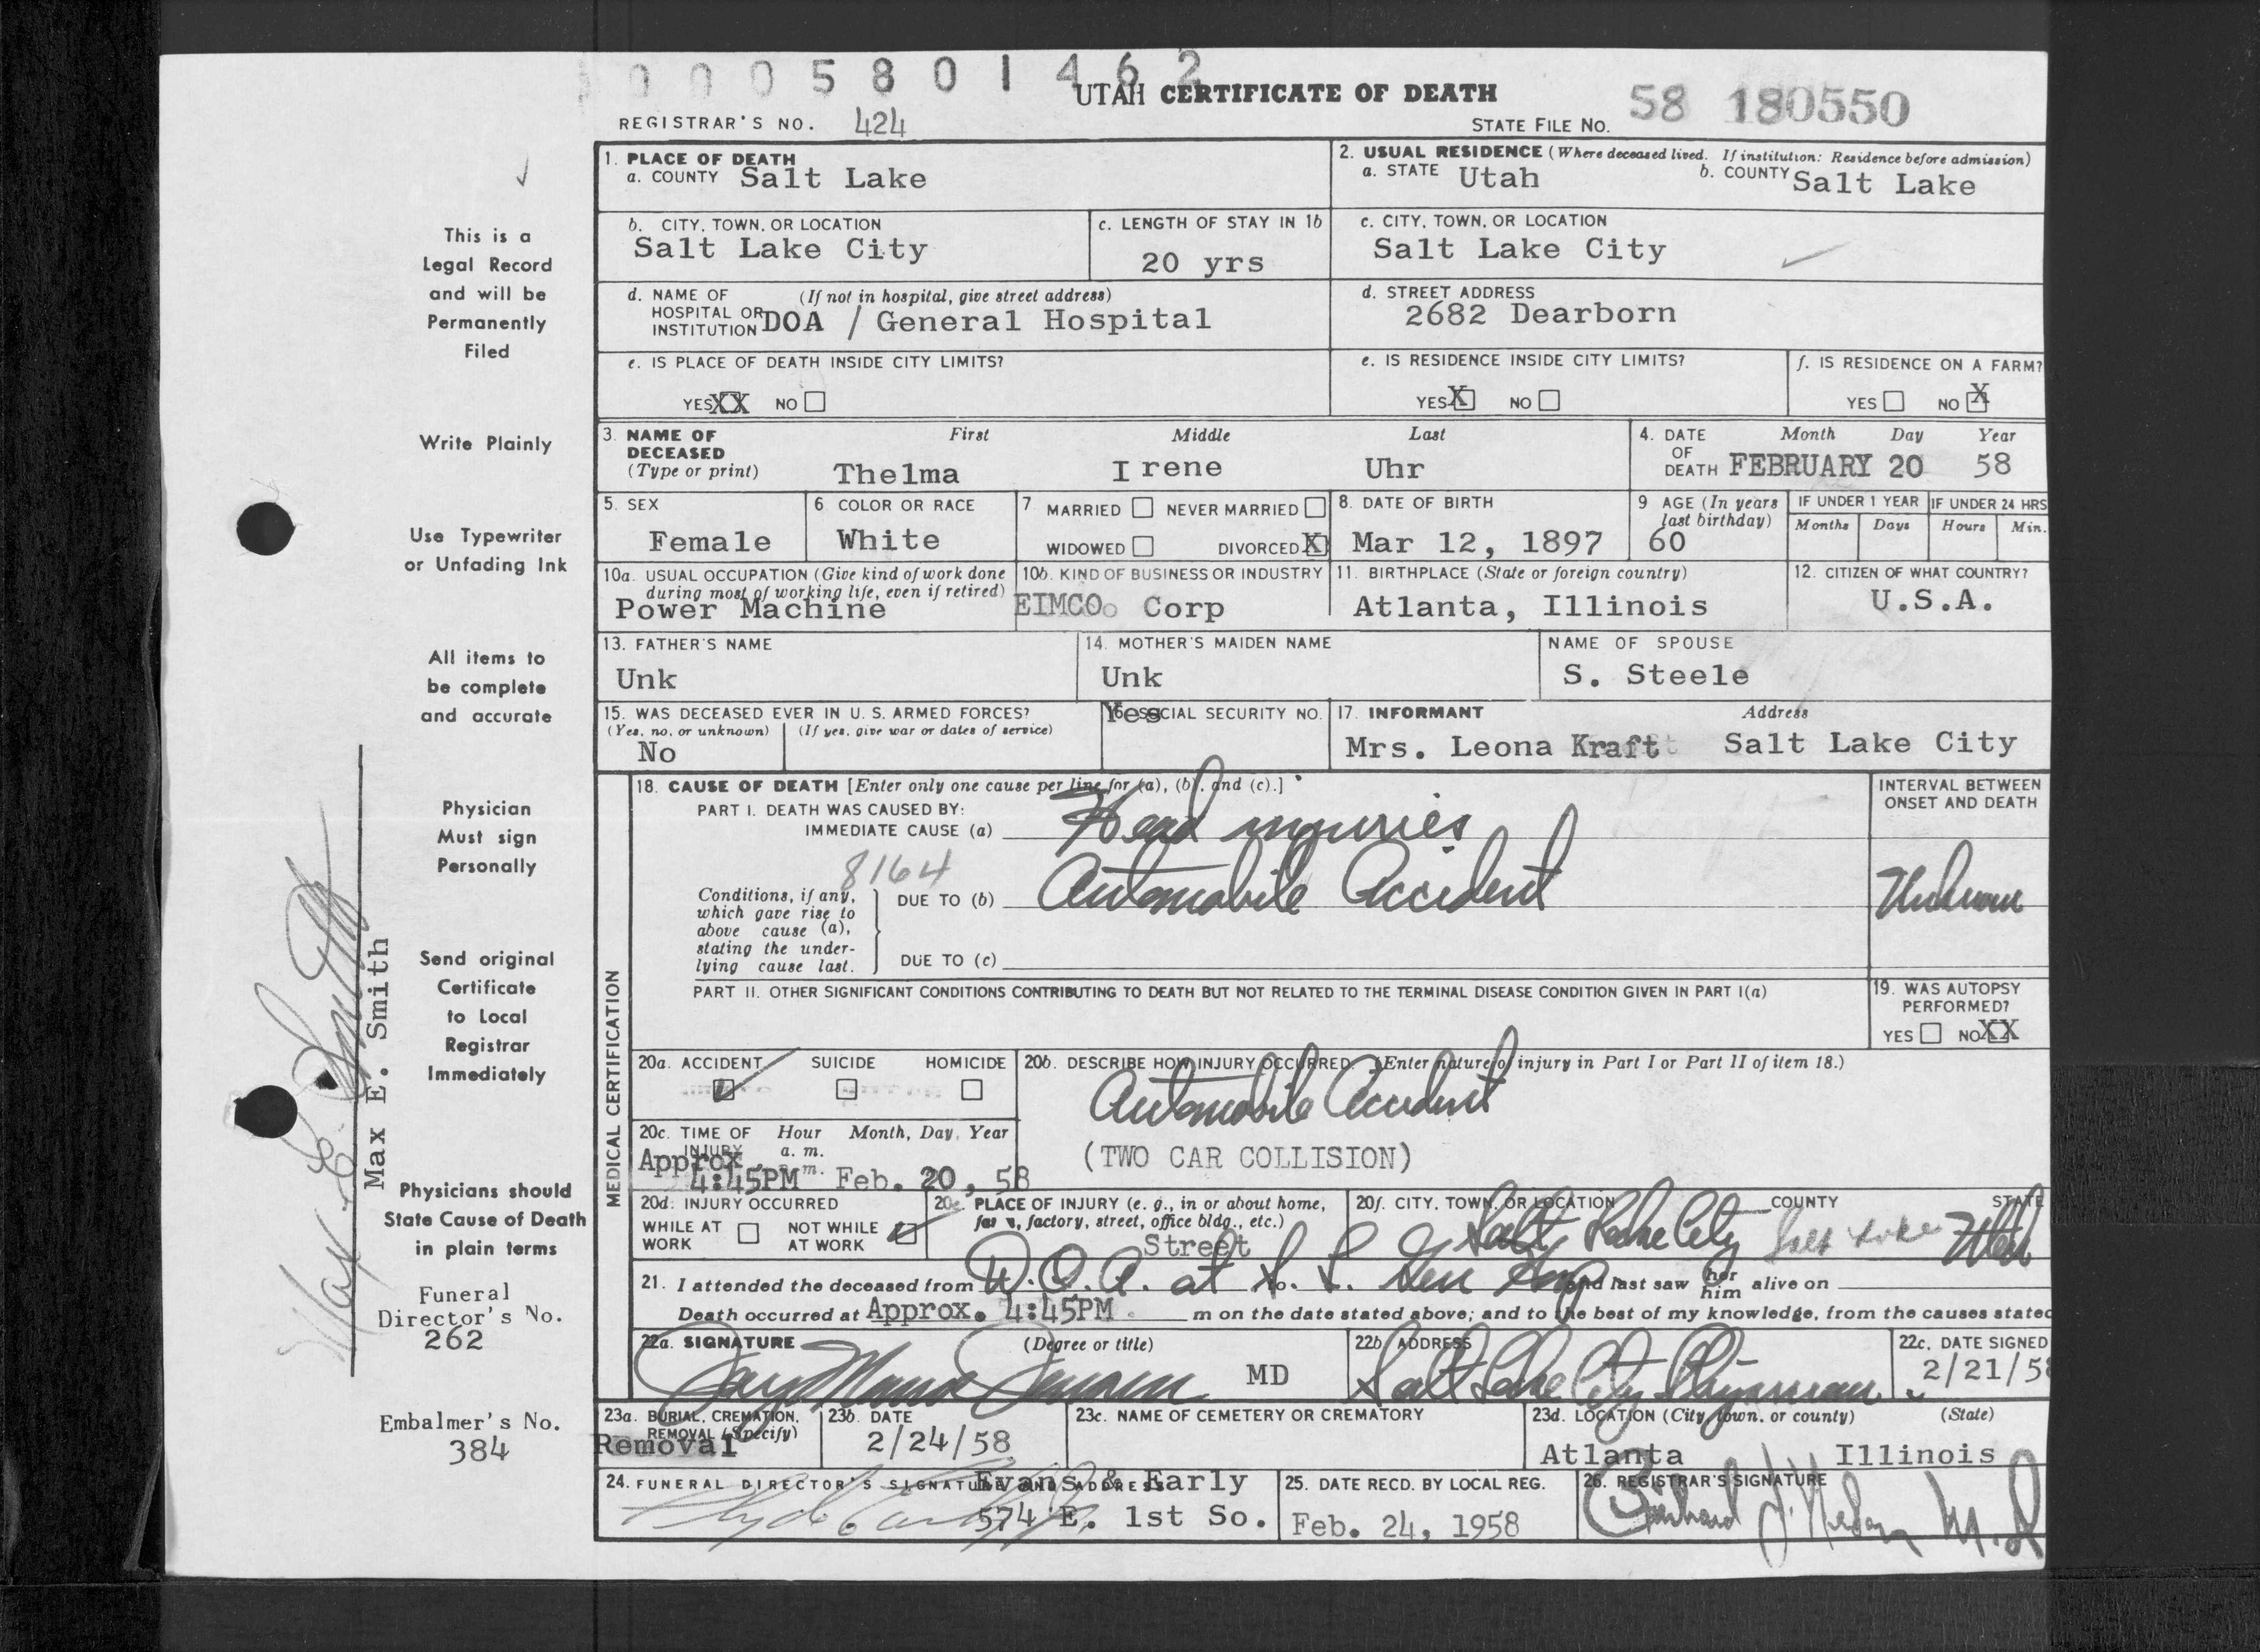 0005801462
UTAH CERTIFICATE OF DEATH
58 180550
REGISTRAR'S NO. 424
STATE FILE NO.
1. PLACE OF DEATH
a. COUNTY Salt Lake
2. USUAL RESIDENCE (Where deceased lived. If institution: Residence before admission)
a. STATE Utah b. COUNTY Salt Lake
b. CITY, TOWN, OR LOCATION
Salt Lake City
c. LENGTH OF STAY IN 1b
20 yrs
c. CITY, TOWN, OR LOCATION
Salt Lake City
d. NAME OF (If not in hospital, give street address)
HOSPITAL OR
INSTITUTION DOA / General Hospital
d. STREET ADDRESS
2682 Dearborn
e. IS PLACE OF DEATH INSIDE CITY LIMITS?
YES XX NO
e. IS RESIDENCE INSIDE CITY LIMITS?
YES X NO
f. IS RESIDENCE ON A FARM?
YES NO X
3. NAME OF DECEASED (Type or print)
First Middle Last
Thelma Irene Uhr
4. DATE OF DEATH
Month Day Year
FEBRUARY 20 58
5. SEX
Female
6 COLOR OR RACE
White
7 MARRIED NEVER MARRIED
WIDOWED DIVORCED X
8. DATE OF BIRTH
Mar 12, 1897
9 AGE (In years last birthday)
60
IF UNDER 1 YEAR
Months Days
IF UNDER 24 HRS
Hours Min.
10a. USUAL OCCUPATION (Give kind of work done
during most of working life, even if retired)
Power Machine
10b. KIND OF BUSINESS OR INDUSTRY
EIMCO Corp
11. BIRTHPLACE (State or foreign country)
Atlanta, Illinois
12. CITIZEN OF WHAT COUNTRY?
U.S.A.
13. FATHER'S NAME
Unk
14. MOTHER'S MAIDEN NAME
Unk
NAME OF SPOUSE
S. Steele
15. WAS DECEASED EVER IN U. S. ARMED FORCES?
(Yes, no, or unknown) (If yes, give war or dates of service)
No
16. SOCIAL SECURITY NO.
Yes
17. INFORMANT Address
Mrs. Leona Kraft Salt Lake City
MEDICAL CERTIFICATION
18. CAUSE OF DEATH [Enter only one cause per line for (a), (b), and (c).]
PART I. DEATH WAS CAUSED BY:
IMMEDIATE CAUSE (a) Head injuries
INTERVAL BETWEEN
ONSET AND DEATH
8164
Conditions, if any,
which gave rise to
above cause (a),
stating the under-
lying cause last.
DUE TO (b) Automobile Accident
Unknown
DUE TO (c)
PART II. OTHER SIGNIFICANT CONDITIONS CONTRIBUTING TO DEATH BUT NOT RELATED TO THE TERMINAL DISEASE CONDITION GIVEN IN PART I(a)
19. WAS AUTOPSY
PERFORMED?
YES NO XX
20a. ACCIDENT SUICIDE HOMICIDE
20b. DESCRIBE HOW INJURY OCCURRED. (Enter nature of injury in Part I or Part II of item 18.)
Automobile Accident
(TWO CAR COLLISION)
20c. TIME OF INJURY Hour Month, Day, Year
a. m.
Approx.
4:45PM Feb. 20, 58
20d. INJURY OCCURRED
WHILE AT WORK NOT WHILE AT WORK
20e. PLACE OF INJURY (e. g., in or about home,
farm, factory, street, office bldg., etc.)
Street
20f. CITY, TOWN, OR LOCATION COUNTY STATE
Salt Lake City Salt Lake Utah
21. I attended the deceased from D.O.A. at S. L. Gen Hosp to and last saw her him alive on
Death occurred at Approx. 4:45PM m on the date stated above; and to the best of my knowledge, from the causes stated
22a. SIGNATURE (Degree or title)
MD
22b. ADDRESS
Salt Lake City
22c. DATE SIGNED
2/21/58
23a. BURIAL, CREMATION,
REMOVAL (Specify)
Removal
23b. DATE
2/24/58
23c. NAME OF CEMETERY OR CREMATORY
23d. LOCATION (City, town, or county) (State)
Atlanta Illinois
24. FUNERAL DIRECTOR'S SIGNATURE AND ADDRESS
Evans & Early
574 E. 1st So.
25. DATE RECD. BY LOCAL REG.
Feb. 24, 1958
26. REGISTRAR'S SIGNATURE
This is a
Legal Record
and will be
Permanently
Filed
Write Plainly
Use Typewriter
or Unfading Ink
All items to
be complete
and accurate
Physician
Must sign
Personally
Send original
Certificate
to Local
Registrar
Immediately
Physicians should
State Cause of Death
in plain terms
Funeral
Director's No.
262
Embalmer's No.
384
Max E. Smith
Max E. Smith